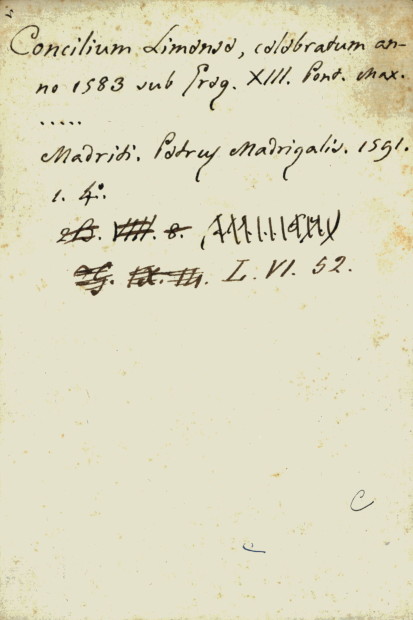 Concilium Limense, celebratum an-
no 1583 sub Greg. XIII. Pont. Max.
.....
Madriti. Petrus Madrigalis. 1591.
1. 4º.
L. VI. 52.